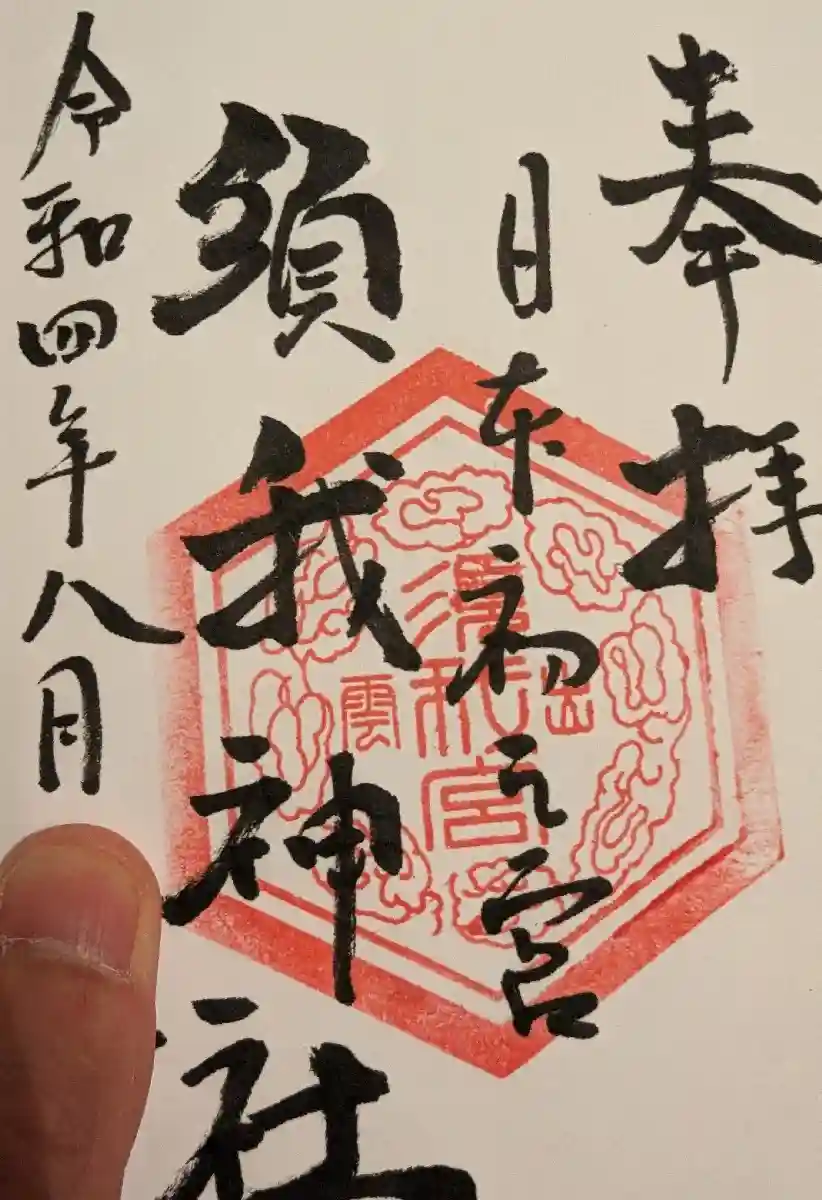 奉拝
日本初之宮
須我神社
令和四年八月
出雲
須我宮